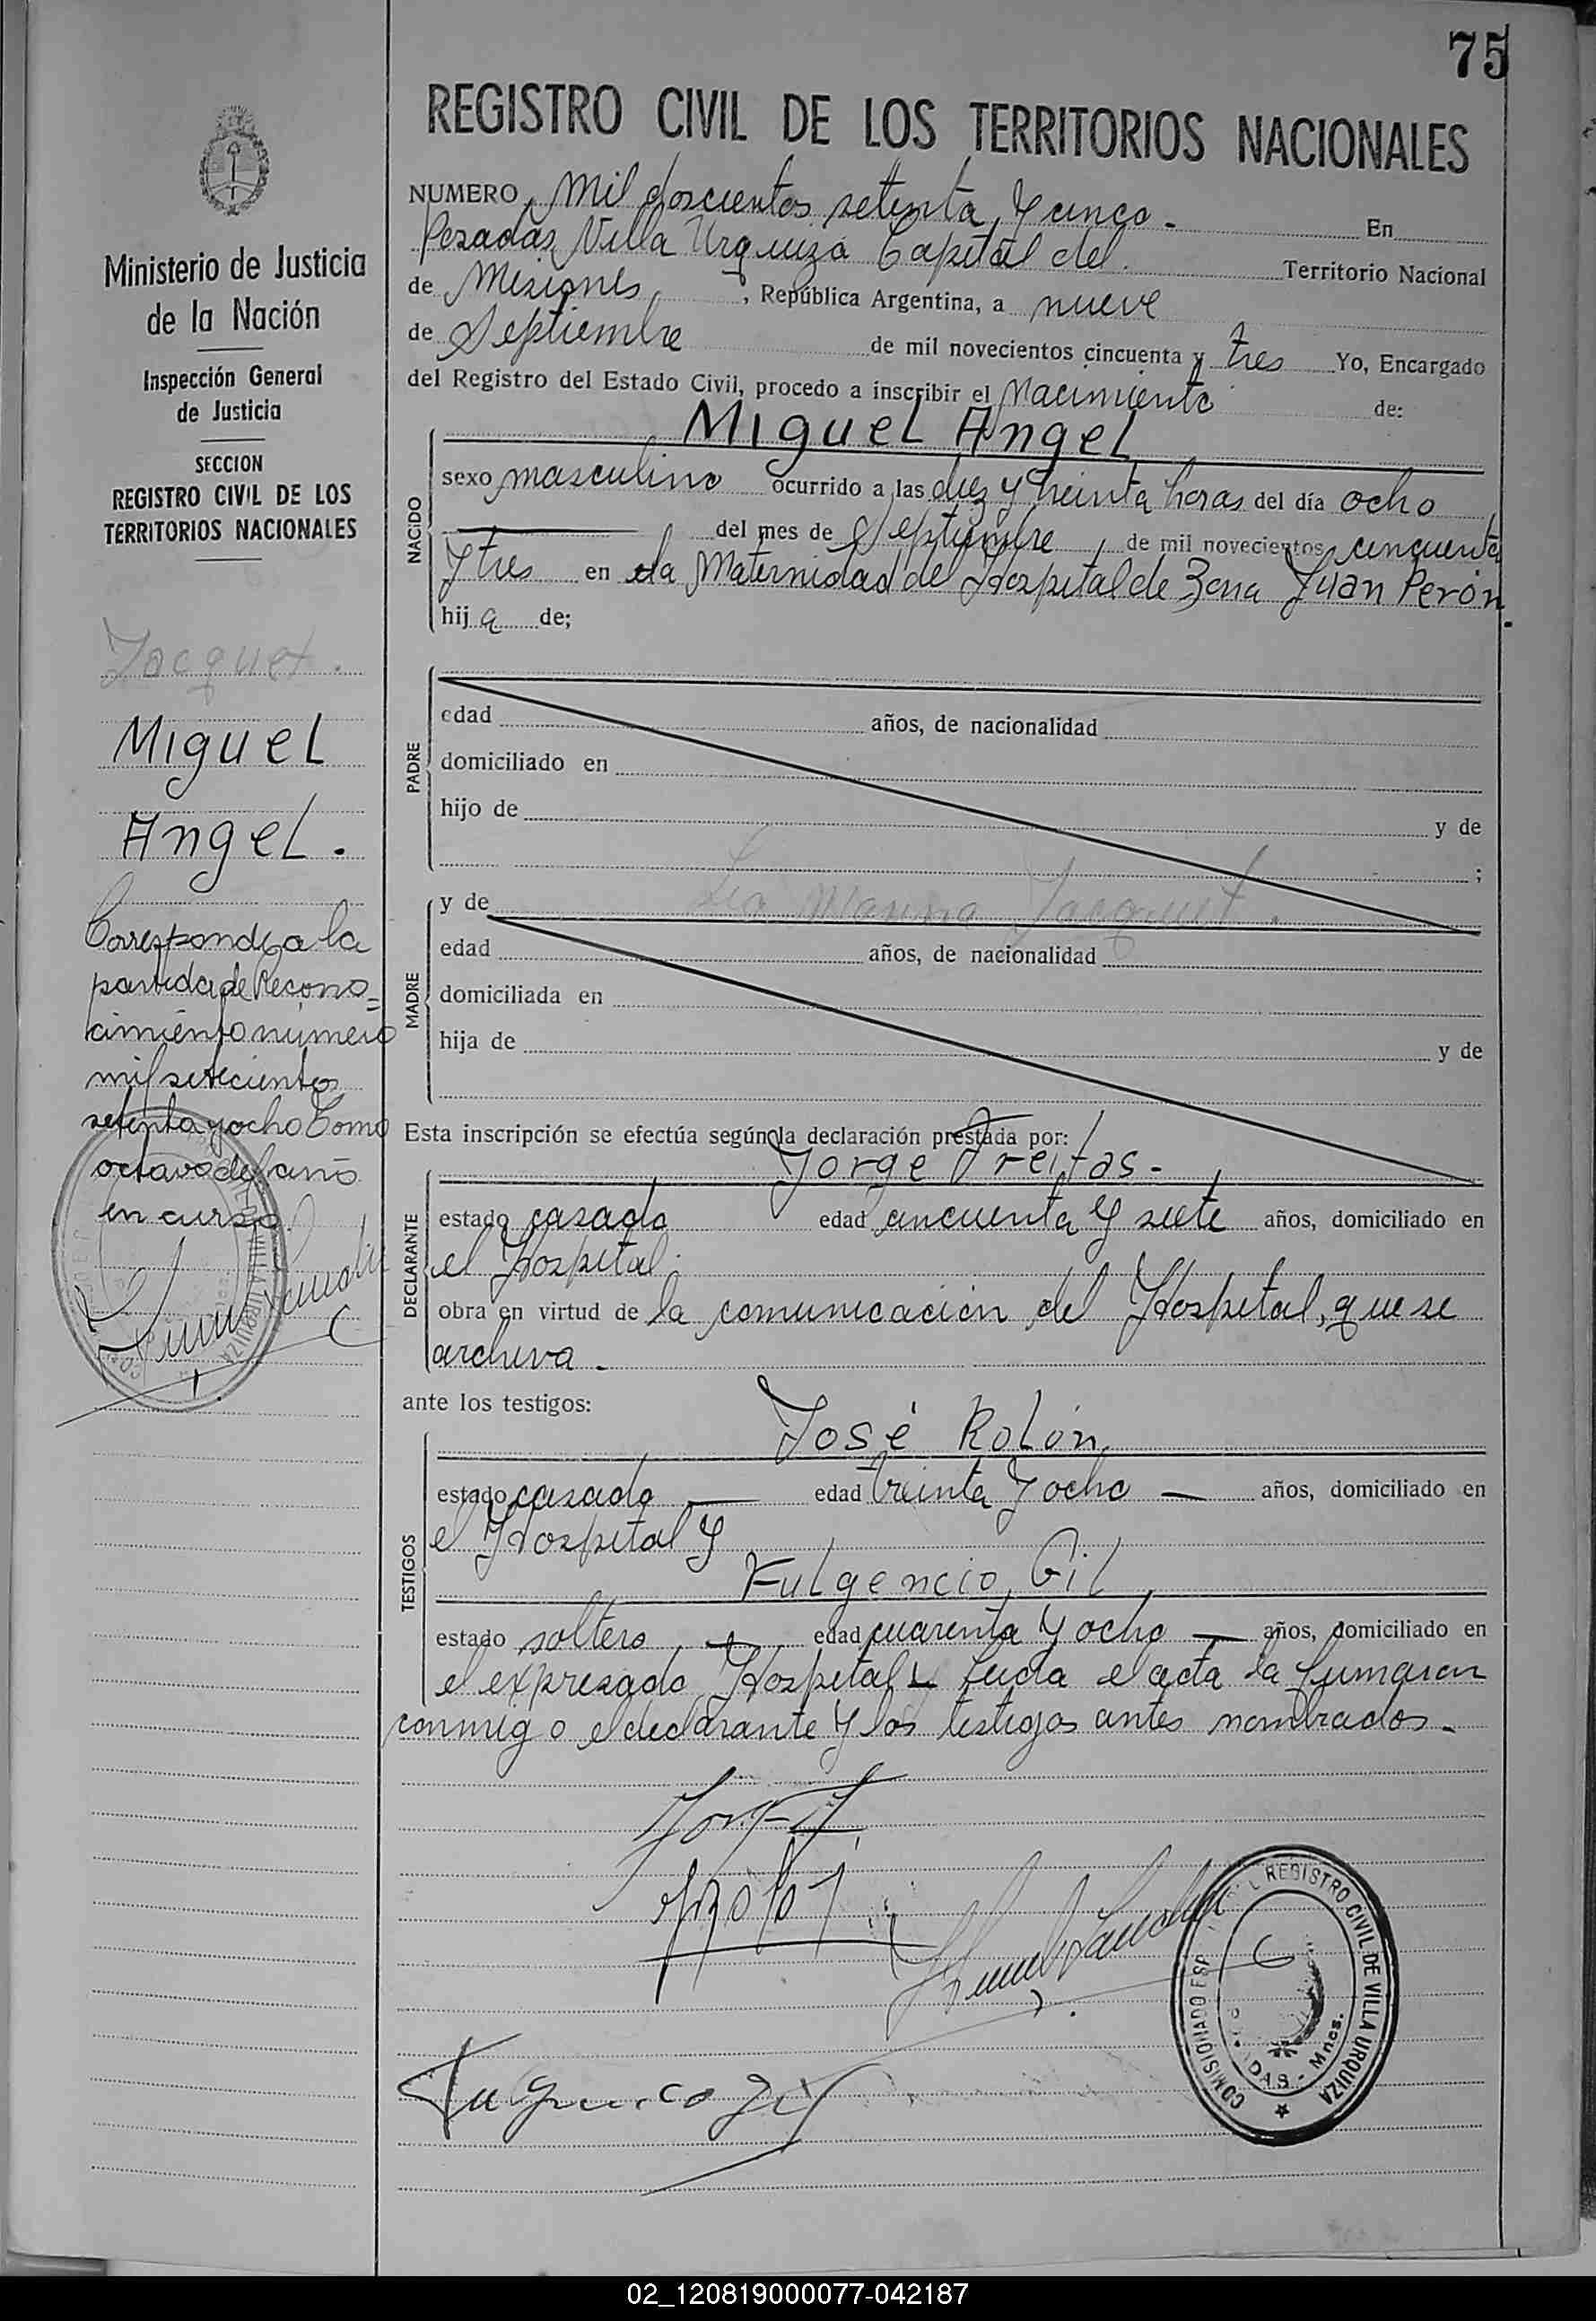 75
REGISTRO CIVIL DE LOS TERRITORIOS NACIONALES
NUMERO Mil doscientos setenta y cinco - En
Posadas Villa Urquiza Capital del Territorio Nacional
de Misiones, República Argentina, a nueve
de Septiembre de mil novecientos cincuenta y tres Yo, Encargado
del Registro del Estado Civil, procedo a inscribir el Nacimiento de:
Miguel Angel
NACIDO
sexo masculino ocurrido a las diez y treinta horas del día ocho
del mes de Septiembre, de mil novecientos cincuenta
y tres en la Maternidad del Hospital de Zona Juan Perón.
hij a de;
PADRE
edad años, de nacionalidad
domiciliado en
hijo de y de
;
MADRE
y de Jacquet.
edad años, de nacionalidad
domiciliada en
hija de y de
Esta inscripción se efectúa según la declaración prestada por:
Jorge Freitas.-
DECLARANTE
estado casado edad cincuenta y siete años, domiciliado en
el Hospital.
obra en virtud de la comunicación del Hospital, que se
archiva.-
ante los testigos:
José Rolón,
TESTIGOS
estado casado — edad treinta y ocho — años, domiciliado en
el Hospital y
Fulgencio Gil,
estado soltero, — edad cuarenta y ocho — años, domiciliado en
el expresado Hospital leida el acta la firmaron
conmigo el declarante y los testigos antes nombrados.-
COMISIONADO REGISTRO CIVIL DE VILLA URQUIZA
DAS - Mnes.
Ministerio de Justicia
de la Nación
Inspección General
de Justicia
SECCION
REGISTRO CIVIL DE LOS
TERRITORIOS NACIONALES
Jacquet.
Miguel
Angel.
Corresponde a la
partida de Recono=
cimiento número
mil setecientos
setenta y ocho Tomo
octavo del año
en curso.
VILLA URQUIZA
02_120819000077-042187